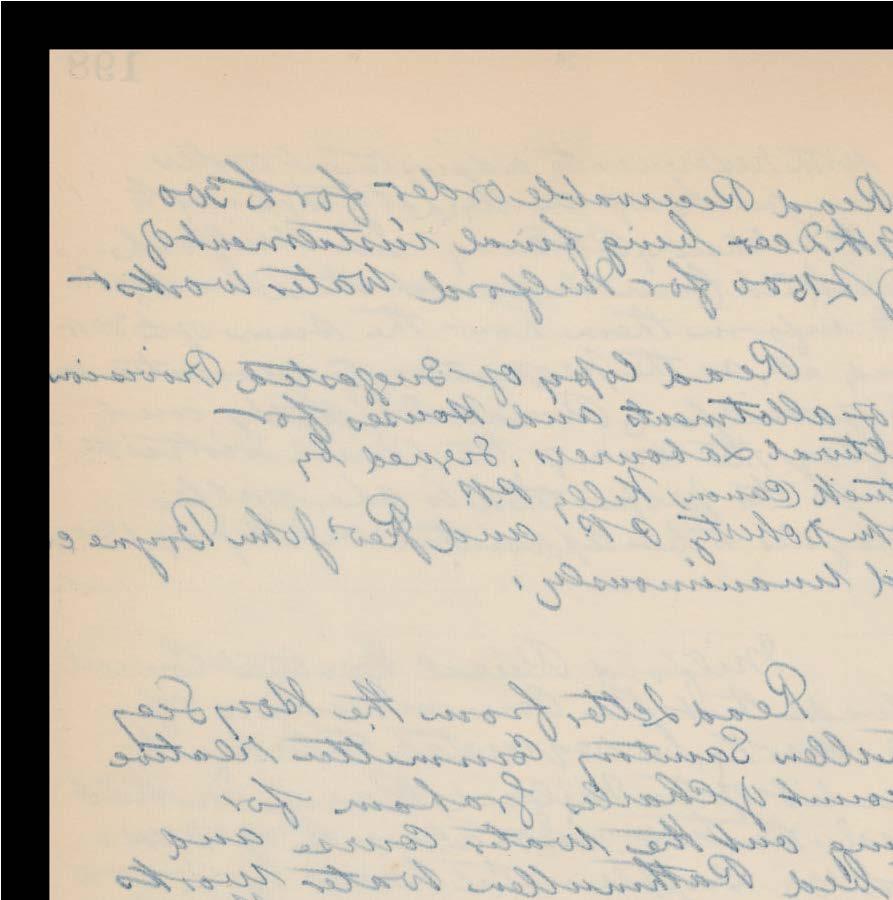 198
Read Receivable order for £300
Decr being final instalment of
£1500 for Milford Water works -
Read Copy of Suggested Provision
of allotments and Houses for
ltural Labourers. Signed by
rick Canon Kelly P.P.
Doherty C.C. and Revd. John Boyne
unanimously.
Read Letter from the Hony Secy
ullen Sanitary Committee relative
count of Charles Graham for
ing out the Water Course and
Rathmullen Water Works